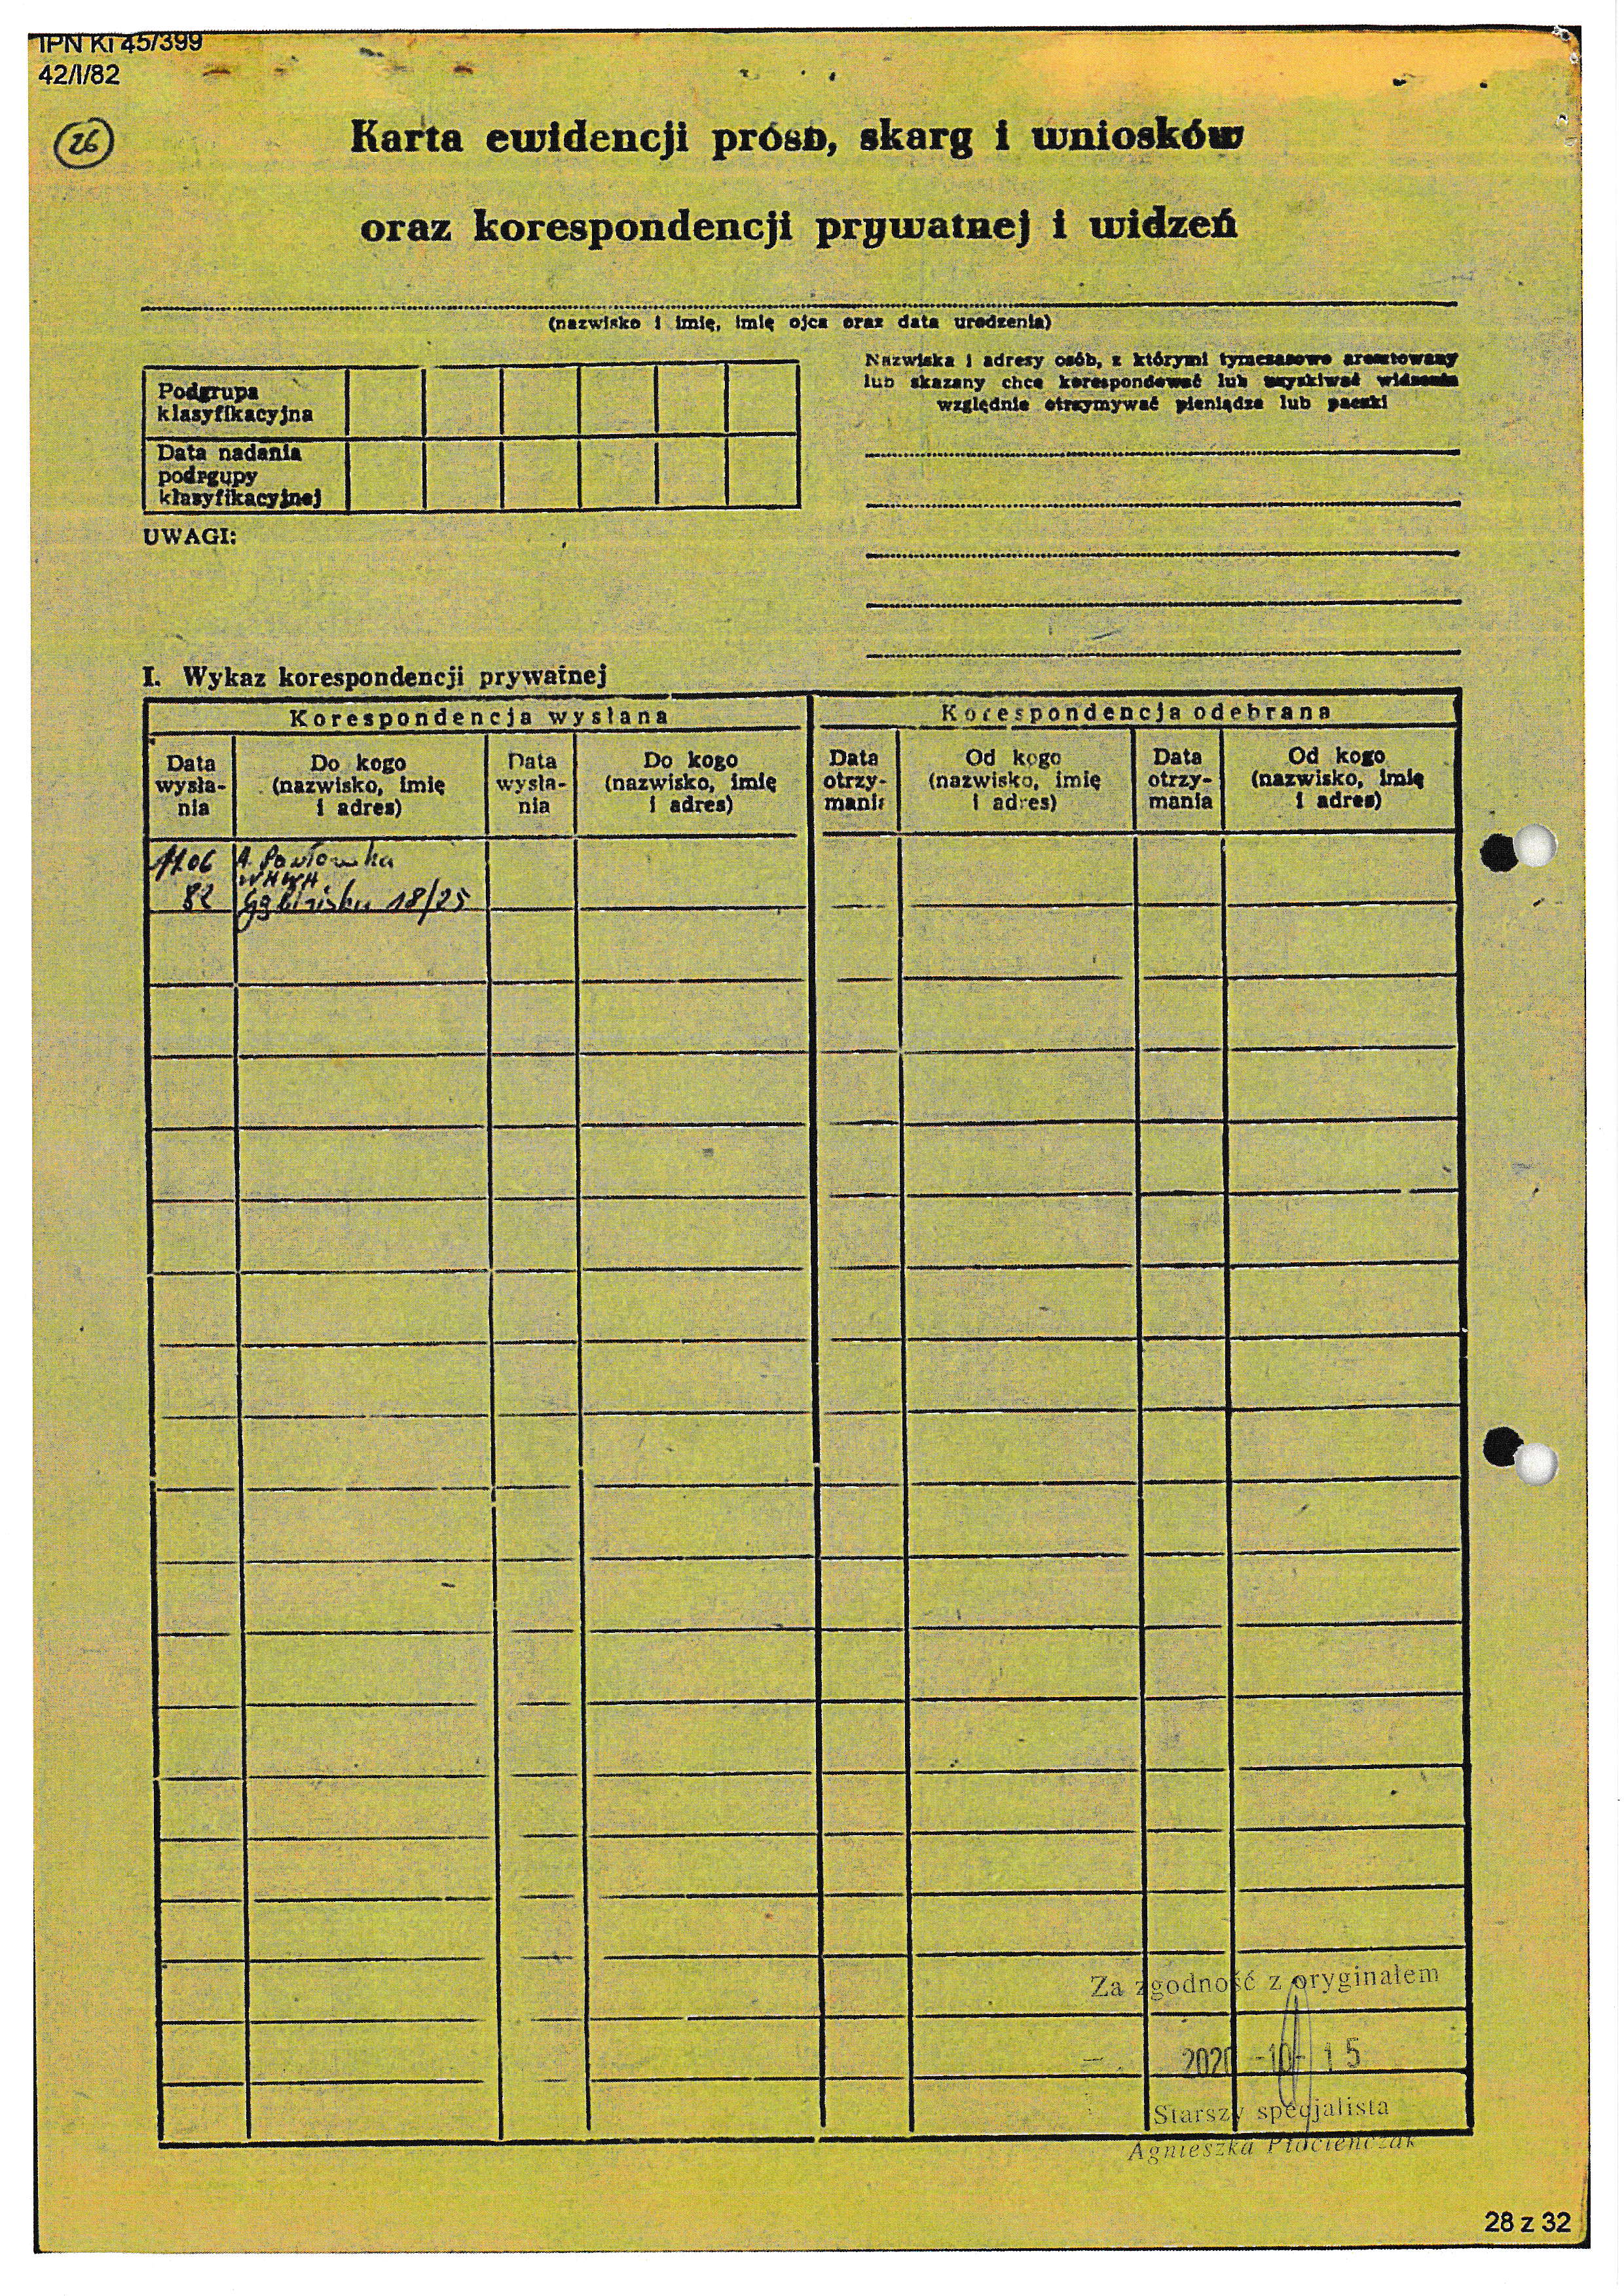 IPN Ki 45/399
42/I/82
26
Karta ewidencji próśb, skarg i wniosków
oraz korespondencji prywatnej i widzeń
(nazwisko i imię, imię ojca oraz data urodzenia)
Podgrupa
klasyfikacyjna
Data nadania
podrgupy
klasyfikacyjnej
UWAGI:
Nazwiska i adresy osób, z którymi tymczasowo aresztowany
lub skazany chce korespondować lub uzyskiwać widzenia
względnie otrzymywać pieniądze lub paczki
I. Wykaz korespondencji prywatnej
Korespondencja wysłana
Korespondencja odebrana
Data
wysła-
nia
Do kogo
(nazwisko, imię
i adres)
Data
wysła-
nia
Do kogo
(nazwisko, imię
i adres)
Data
otrzy-
mania
Od kogo
(nazwisko, imię
i adres)
Data
otrzy-
mania
Od kogo
(nazwisko, imię
i adres)
11.06
82
A. Pawłowska
18/25
Za zgodność z oryginałem
2020 -10- 15
Starszy specjalista
Agnieszka Płócienczak
28 z 32